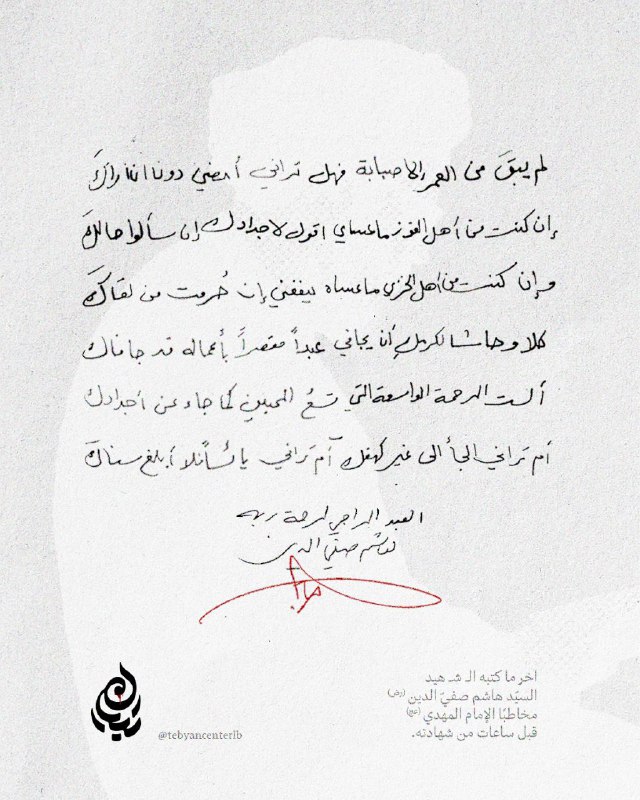 لم يبقَ من العمر إلا صبابة فهل تراني أمضي دونا ان اراكَ
إن كنت من أهل الفوز ما عساي اقول لاجدادك إن سألوا حالك
وإن كنت من اهل الخزي ما عساه ينفعني إن حُرمت من لقاكَ
كلا وحاشا لكريمٍ أن يجافي عبداً مقصراً بأعماله قد جافاك
ألست الرحمة الواسعة التي تسعُ المحبين كما جاء عن أجدادك
ام تراني الجأ الى غير كهفك أم تراني يائساً فلا أبلغ سناكَ
العبد الراجي لرحمة ربه
هاشم صفي الدين
اخر ما كتبه الـ شـ هيد
السيّد هاشم صفيّ الدين (رض)
مخاطبًا الإمام المهدي (عج)
قبل ساعات من شهادته.
تبيان
@tebyancenterlb